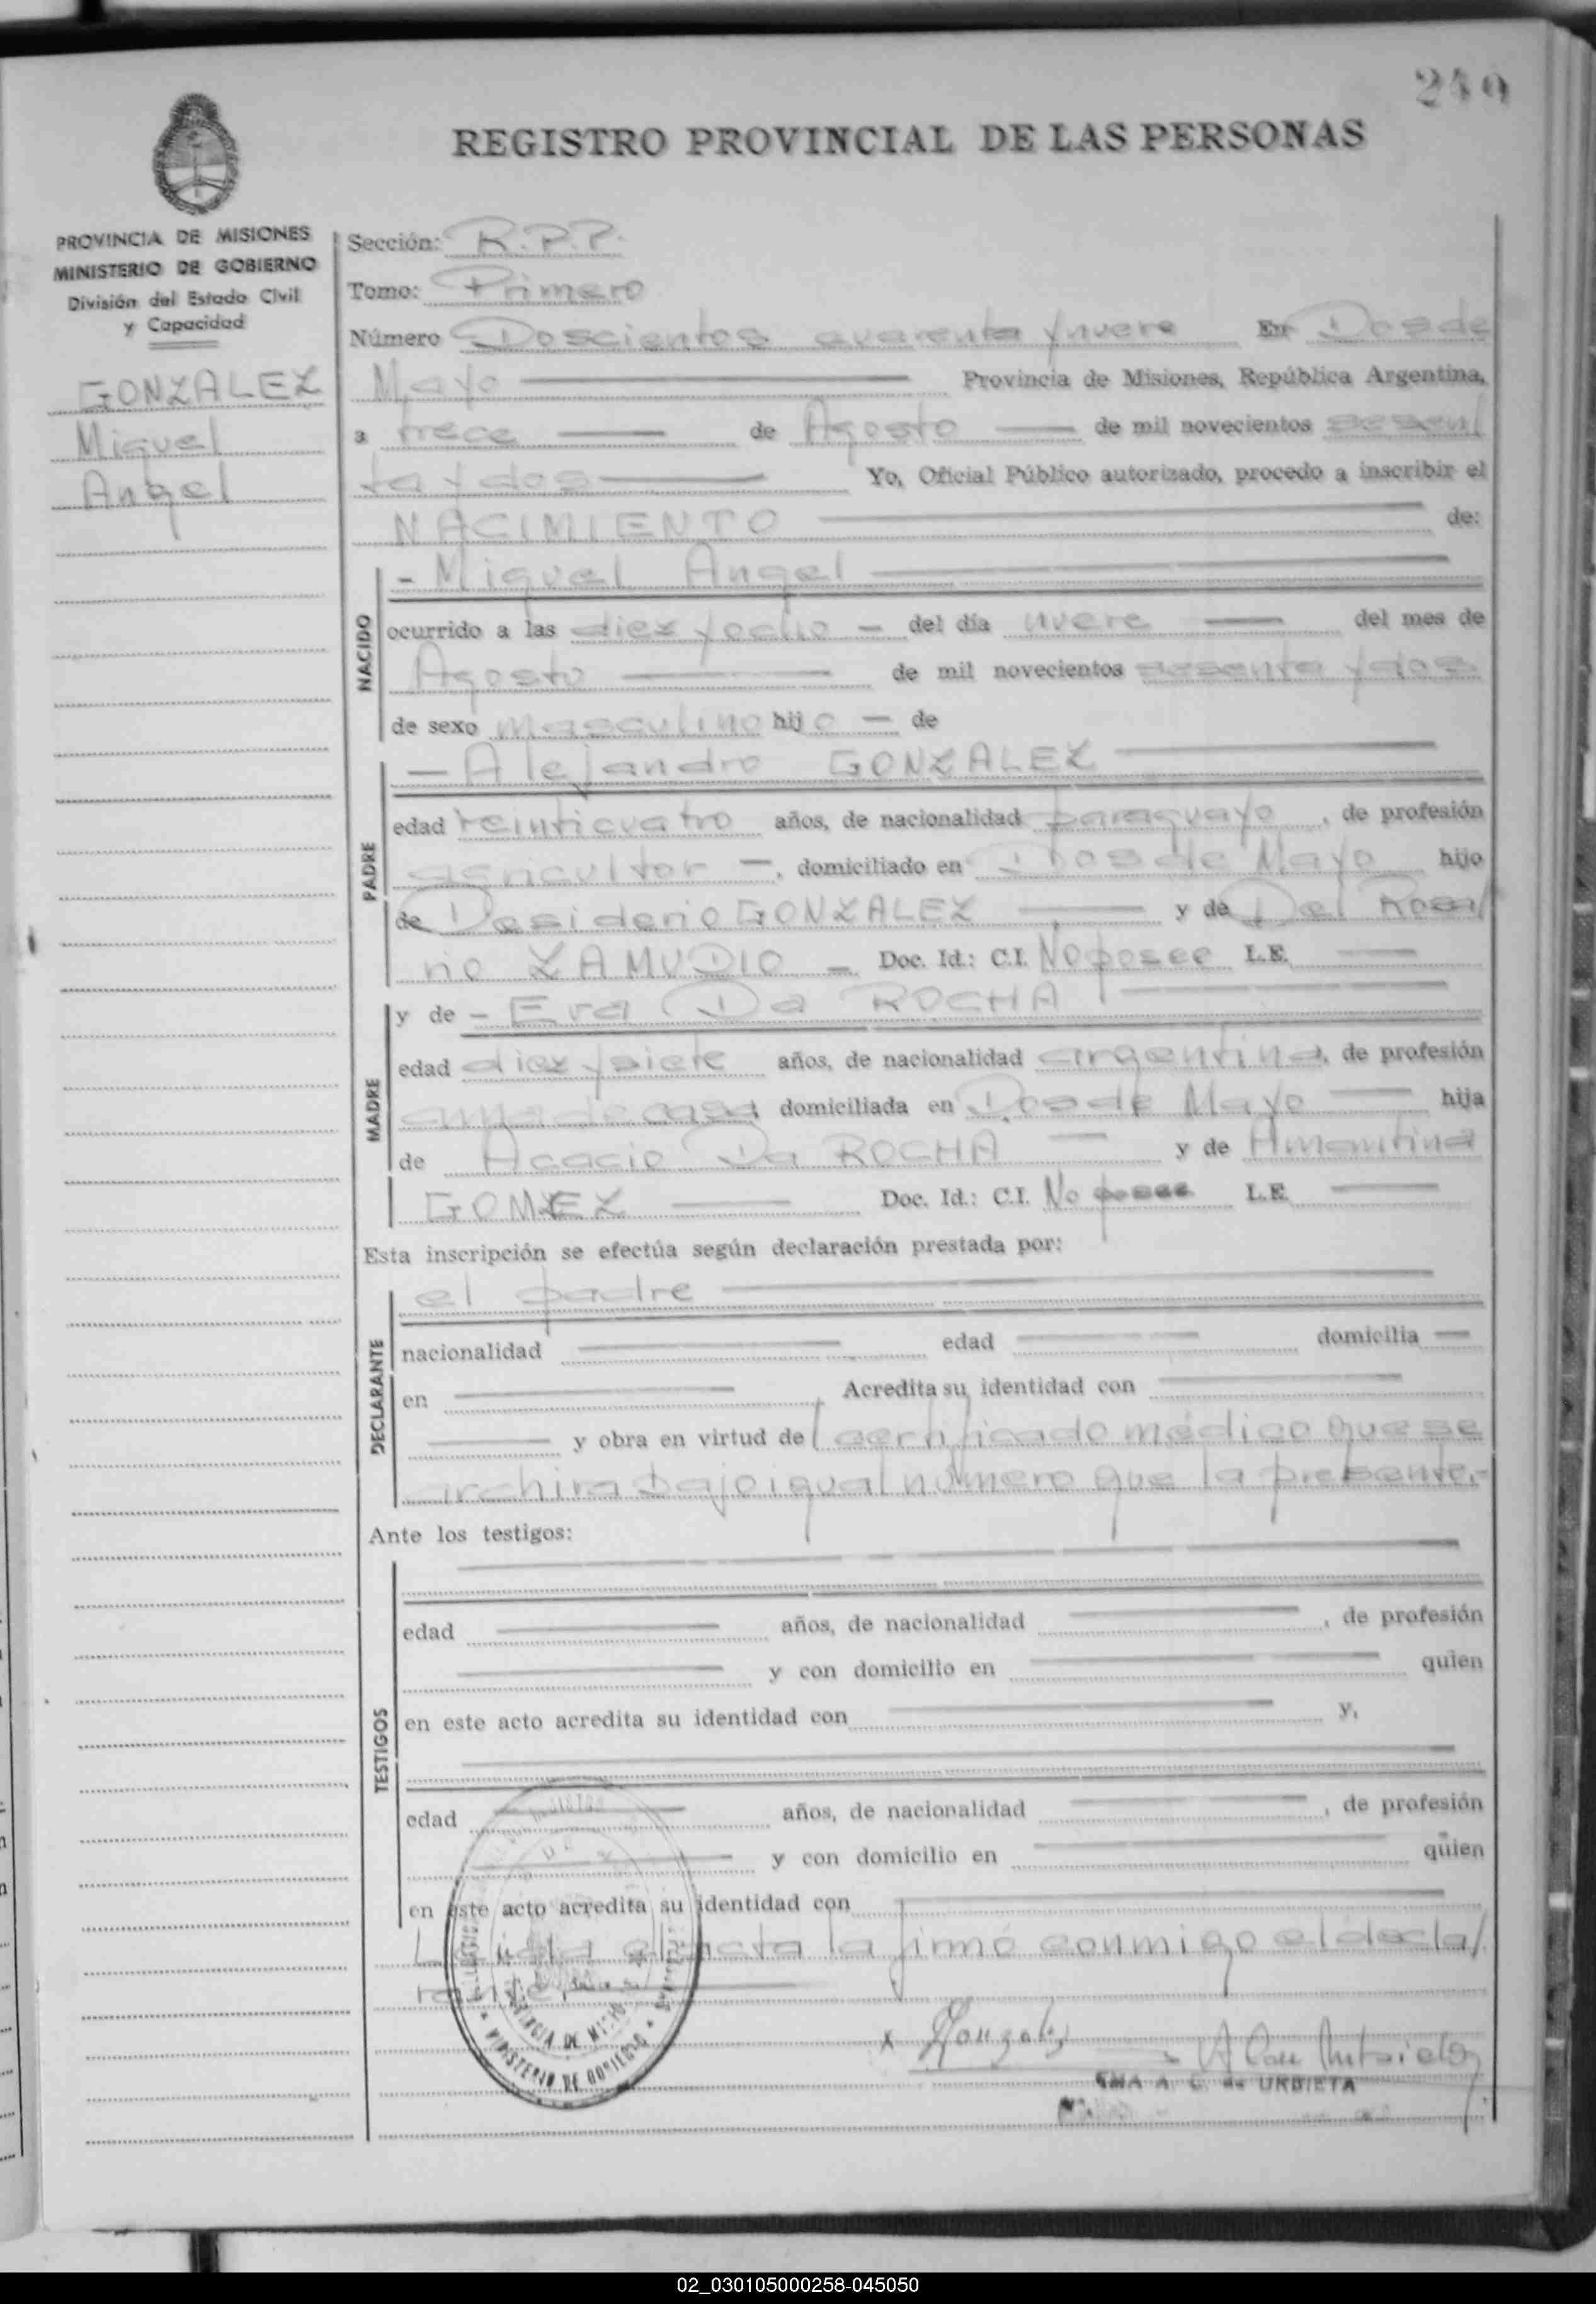 249
REGISTRO PROVINCIAL DE LAS PERSONAS
PROVINCIA DE MISIONES
MINISTERIO DE GOBIERNO
División del Estado Civil
y Capacidad
GONZALEZ
Miguel
Angel
Sección: R.P.P.
Tomo: Primero
Número Doscientos cuarenta y nueve En Dos de
Mayo Provincia de Misiones, República Argentina,
a trece de Agosto de mil novecientos sesen/
ta y dos Yo, Oficial Público autorizado, procedo a inscribir el
NACIMIENTO de:
NACIDO
- Miguel Angel
ocurrido a las diez y ocho - del día nueve del mes de
Agosto de mil novecientos sesenta y dos
de sexo masculino hijo - de
PADRE
- Alejandro GONZALEZ
edad veinticuatro años, de nacionalidad paraguayo, de profesión
agricultor -, domiciliado en Dos de Mayo hijo
de Desiderio GONZALEZ y de Del Rosa/
rio ZAMUDIO - Doc. Id.: C.I. No posee L.E.
MADRE
y de - Eva Da ROCHA
edad diez y siete años, de nacionalidad argentina, de profesión
ama de casa, domiciliada en Dos de Mayo hija
de Acacio Da ROCHA y de Amantina
GOMEZ Doc. Id.: C.I. No posee L.E.
Esta inscripción se efectúa según declaración prestada por:
DECLARANTE
el padre
nacionalidad edad domicilia
en Acredita su identidad con
y obra en virtud de/ certificado médico que se
archiva bajo igual número que la presente.-
Ante los testigos:
TESTIGOS
edad años, de nacionalidad , de profesión
y con domicilio en quien
en este acto acredita su identidad con y,
edad años, de nacionalidad , de profesión
y con domicilio en quien
en este acto acredita su identidad con
Leída el acta la firmó conmigo el decla/
rante.
MINISTERIO DE GOBIERNO
x Gonzalez
A. C. de URBIETA
02_030105000258-045050